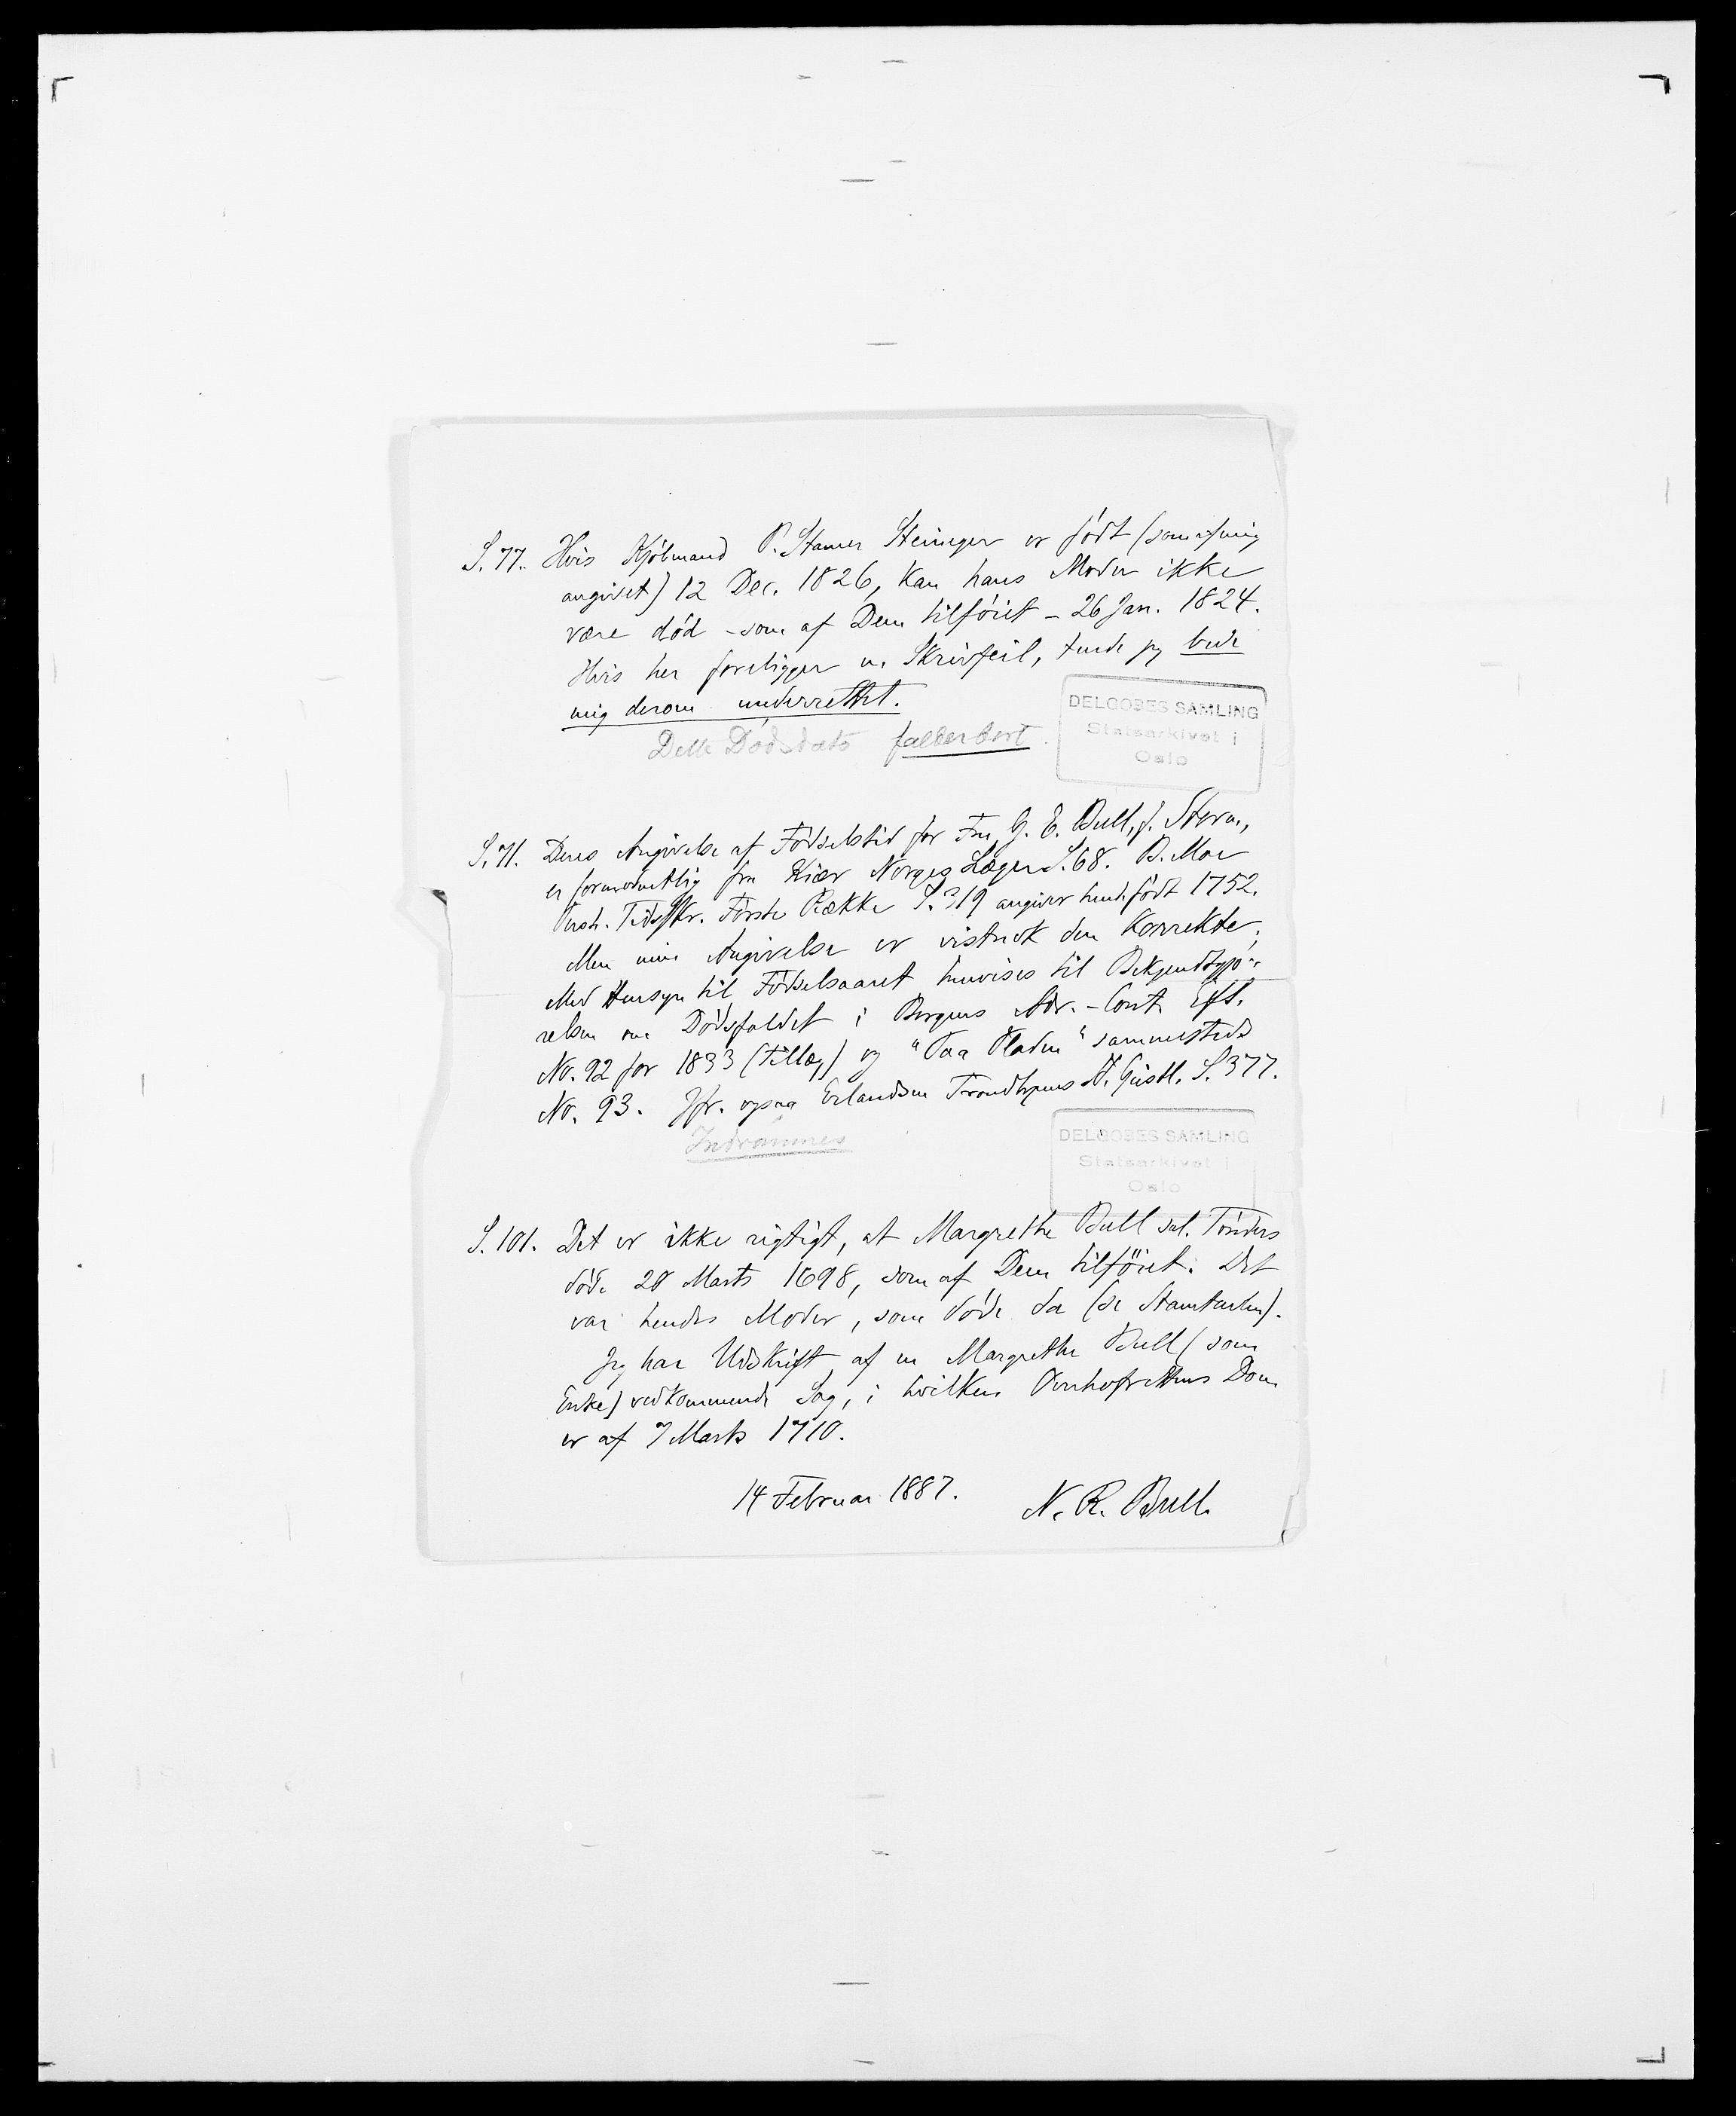 S. 77. Hvis Kjøbmand P. Stamer Steineger er født (som af mig
angivet) 12 Dec. 1826, kan hans Moder ikke
være død - som af Dem tilføiet - 26 Jan. 1824.
Hvis her foreligger en Skrivfeil, turde jeg bede
mig derom underrettet.
Dette Dødsdato falder bort.
DELGOBES SAMLING
Statsarkivet i
Oslo
S. 71. Deres Angivelse af Fødselstid for Fru G. E. Bull, f. Sterm,
er formodentlig fra Kiær Norges Læger S. 68. B. Moe
Tidsskr. Første Række S. 319 angiver hende født 1752.
Men min Angivelse er vistnok den korrekte;
Med Hensyn til Fødselsaaret henvises til Bekjendtgjø-
relsen om Dødsfaldet i Bergens Adr.-Cont. Eft.
No. 92 for 1833 (Tillæg) og "Paa Pladen" sammesteds
No. 93. Jfr. ogsaa Erlandsen Trondhjems St. Geistl. S. 377.
Indrømmes
DELGOBES SAMLING
Statsarkivet i
Oslo
S. 101. Det er ikke rigtigt, at Margrethe Bull sal. Tønders
døde 20 Marts 1698, som af Dem tilføiet. Det
var hendes Moder, som døde da (se Stamtavlen).
Jeg har Udskrift af en Margrethe Bull (som
Enke) vedkommende Sag, i hvilken Overhofrettens Dom
er af 7 Marts 1710.
14 Februar 1887. N. R. Bull.